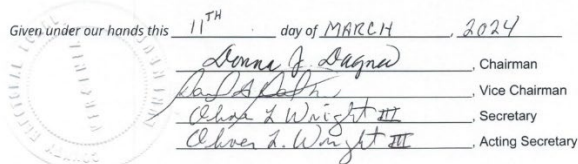 Given under our hands this 11TH day of MARCH, 2024
Donna J. Dagner, Chairman
, Vice Chairman
Oliver L Wright III, Secretary
Oliver L. Wright III, Acting Secretary